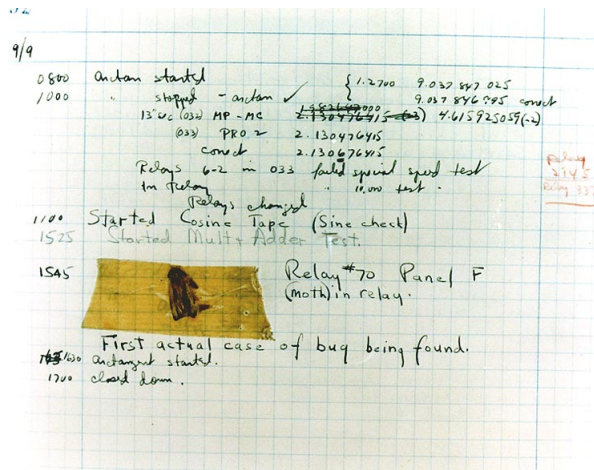 9/9
0800 antan started
1000 " stopped - antan ✓ { 1.2700 9.037 847 025
9.037 846 995 conect
13" uc (032) MP - MC 2.130476415 (-3) 4.615925059(-2)
(033) PRO 2 2.130476415
conect 2.130676415
Relays 6-2 in 033 failed special speed test
In Relay " 10,000 test .
Relay 3370
Relays changed
1100 Started Cosine Tape (Sine check)
1525 Started Mult+Adder Test.
1545 Relay #70 Panel F
(moth) in relay.
First actual case of bug being found.
1630 antangent started.
1700 closed down.